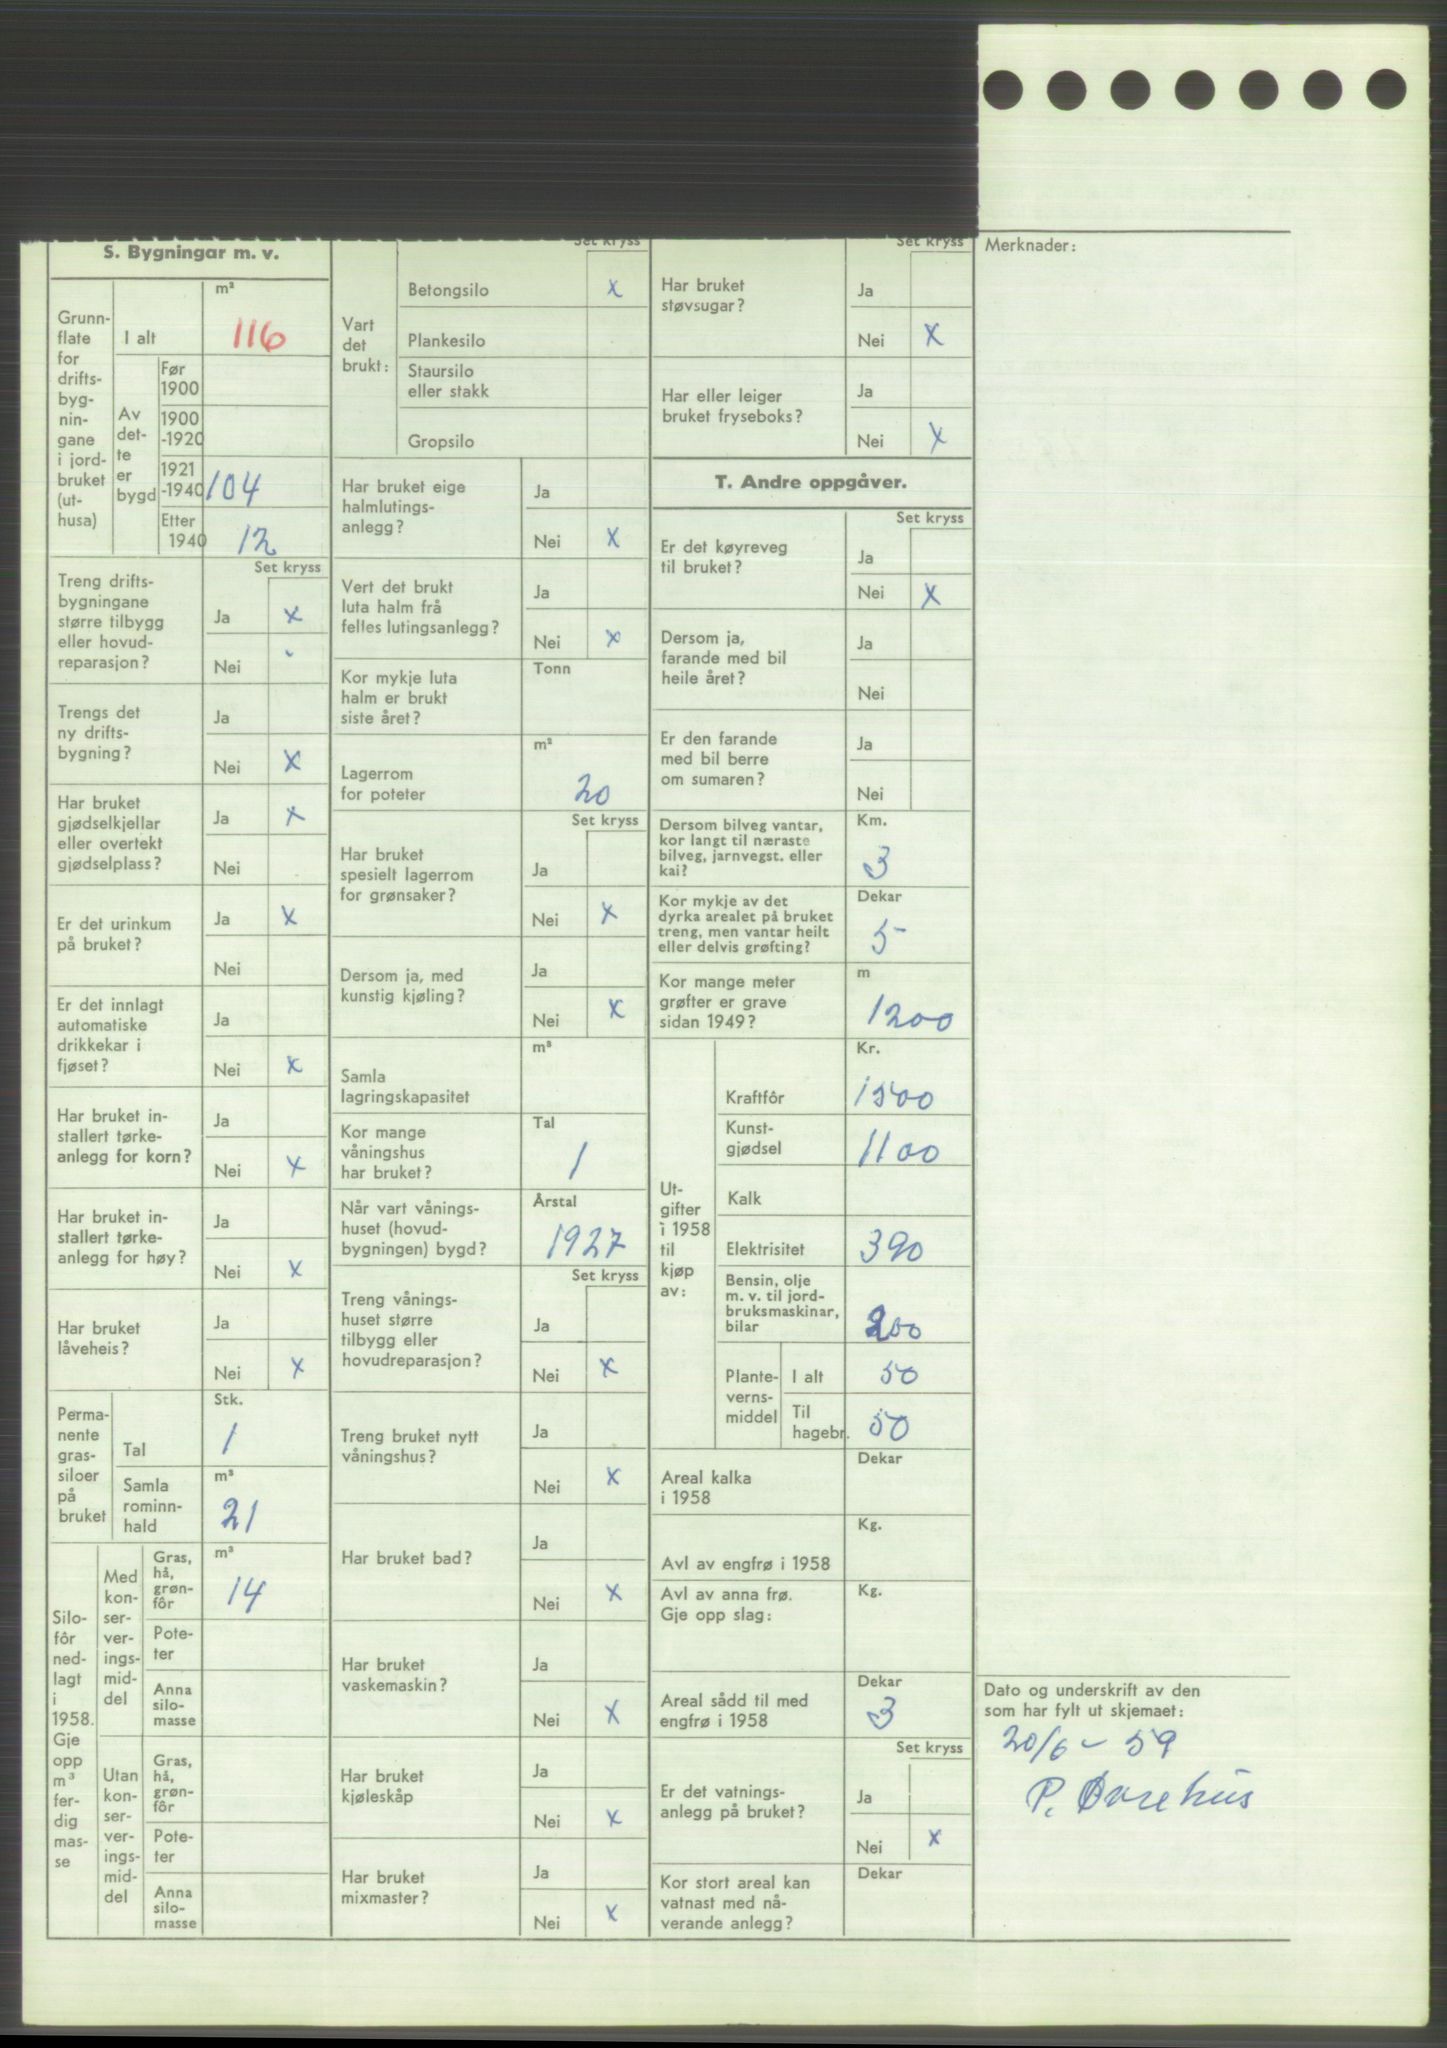 S. Bygningar m. v.
Grunn-
flate
for
drifts-
byg-
nin-
gane
i jord-
bruket
(ut-
husa)
m²
I alt 116
Av
det-
te
er
bygd
Før
1900
1900
-1920
1921
-1940 104
Etter
1940 12
Set kryss
Treng drifts-
bygningane
større tilbygg
eller hovud-
reparasjon?
Ja x
Nei
Trengs det
ny drifts-
bygning?
Ja
Nei x
Har bruket
gjødselkjellar
eller overtekt
gjødselplass?
Ja x
Nei
Er det urinkum
på bruket?
Ja x
Nei
Er det innlagt
automatiske
drikkekar i
fjøset?
Ja
Nei x
Har bruket in-
stallert tørke-
anlegg for korn?
Ja
Nei x
Har bruket in-
stallert tørke-
anlegg for høy?
Ja
Nei x
Har bruket
låveheis?
Ja
Nei x
Perma-
nente
gras-
siloer
på
bruket
Stk.
Tal 1
m³
Samla
rominn-
hald 21
Silo-
fôr
ned-
lagt
i
1958.
Gje
opp
m³
fer-
dig
mas-
se
Med
kon-
ser-
ver-
ings-
mid-
del
m³
Gras,
hå,
grøn-
fôr 14
Pote-
ter
Anna
silo-
masse
Utan
kon-
ser-
ver-
ings-
mid-
del
Gras,
hå,
grøn-
fôr
Pote-
ter
Anna
silo-
masse
Set kryss
Vart
det
brukt:
Betongsilo x
Plankesilo
Staursilo
eller stakk
Gropsilo
Har bruket eige
halmlutings-
anlegg?
Ja
Nei x
Vert det brukt
luta halm frå
felles lutingsanlegg?
Ja
Nei x
Kor mykje luta
halm er brukt
siste året?
Tonn
Lagerrom
for poteter
m²
20
Set kryss
Har bruket
spesielt lagerrom
for grønsaker?
Ja
Nei x
Dersom ja, med
kunstig kjøling?
Ja
Nei x
Samla
lagringskapasitet
m³
Kor mange
våningshus
har bruket?
Tal
1
Når vart vånings-
huset (hovud-
bygningen) bygd?
Årstal
1927
Set kryss
Treng vånings-
huset større
tilbygg eller
hovudreparasjon?
Ja
Nei x
Treng bruket nytt
våningshus?
Ja
Nei x
Har bruket bad?
Ja
Nei x
Har bruket
vaskemaskin?
Ja
Nei x
Har bruket
kjøleskåp
Ja
Nei x
Har bruket
mixmaster?
Ja
Nei x
Set kryss
Har bruket
støvsugar?
Ja
Nei x
Har eller leiger
bruket fryseboks?
Ja
Nei x
T. Andre oppgåver.
Set kryss
Er det køyreveg
til bruket?
Ja
Nei x
Dersom ja,
farande med bil
heile året?
Ja
Nei
Er den farande
med bil berre
om sumaren?
Ja
Nei
Dersom bilveg vantar,
kor langt til næraste
bilveg, jarnvegst. eller
kai?
Km.
3
Kor mykje av det
dyrka arealet på bruket
treng, men vantar heilt
eller delvis grøfting?
Dekar
5
Kor mange meter
grøfter er grave
sidan 1949?
m
1200
Ut-
gifter
i 1958
til
kjøp
av:
Kr.
Kraftfôr 1500
Kunst-
gjødsel 1100
Kalk
Elektrisitet 390
Bensin, olje
m. v. til jord-
bruksmaskinar,
bilar 200
Plante-
verns-
middel
I alt 50
Til
hagebr. 50
Areal kalka
i 1958
Dekar
Avl av engfrø i 1958
Kg.
Avl av anna frø.
Gje opp slag:
Kg.
Areal sådd til med
engfrø i 1958
Dekar
3
Set kryss
Er det vatnings-
anlegg på bruket?
Ja
Nei x
Kor stort areal kan
vatnast med nå-
verande anlegg?
Dekar
Merknader:
Dato og underskrift av den
som har fylt ut skjemaet:
20/6 - 59
P. Øvrehus